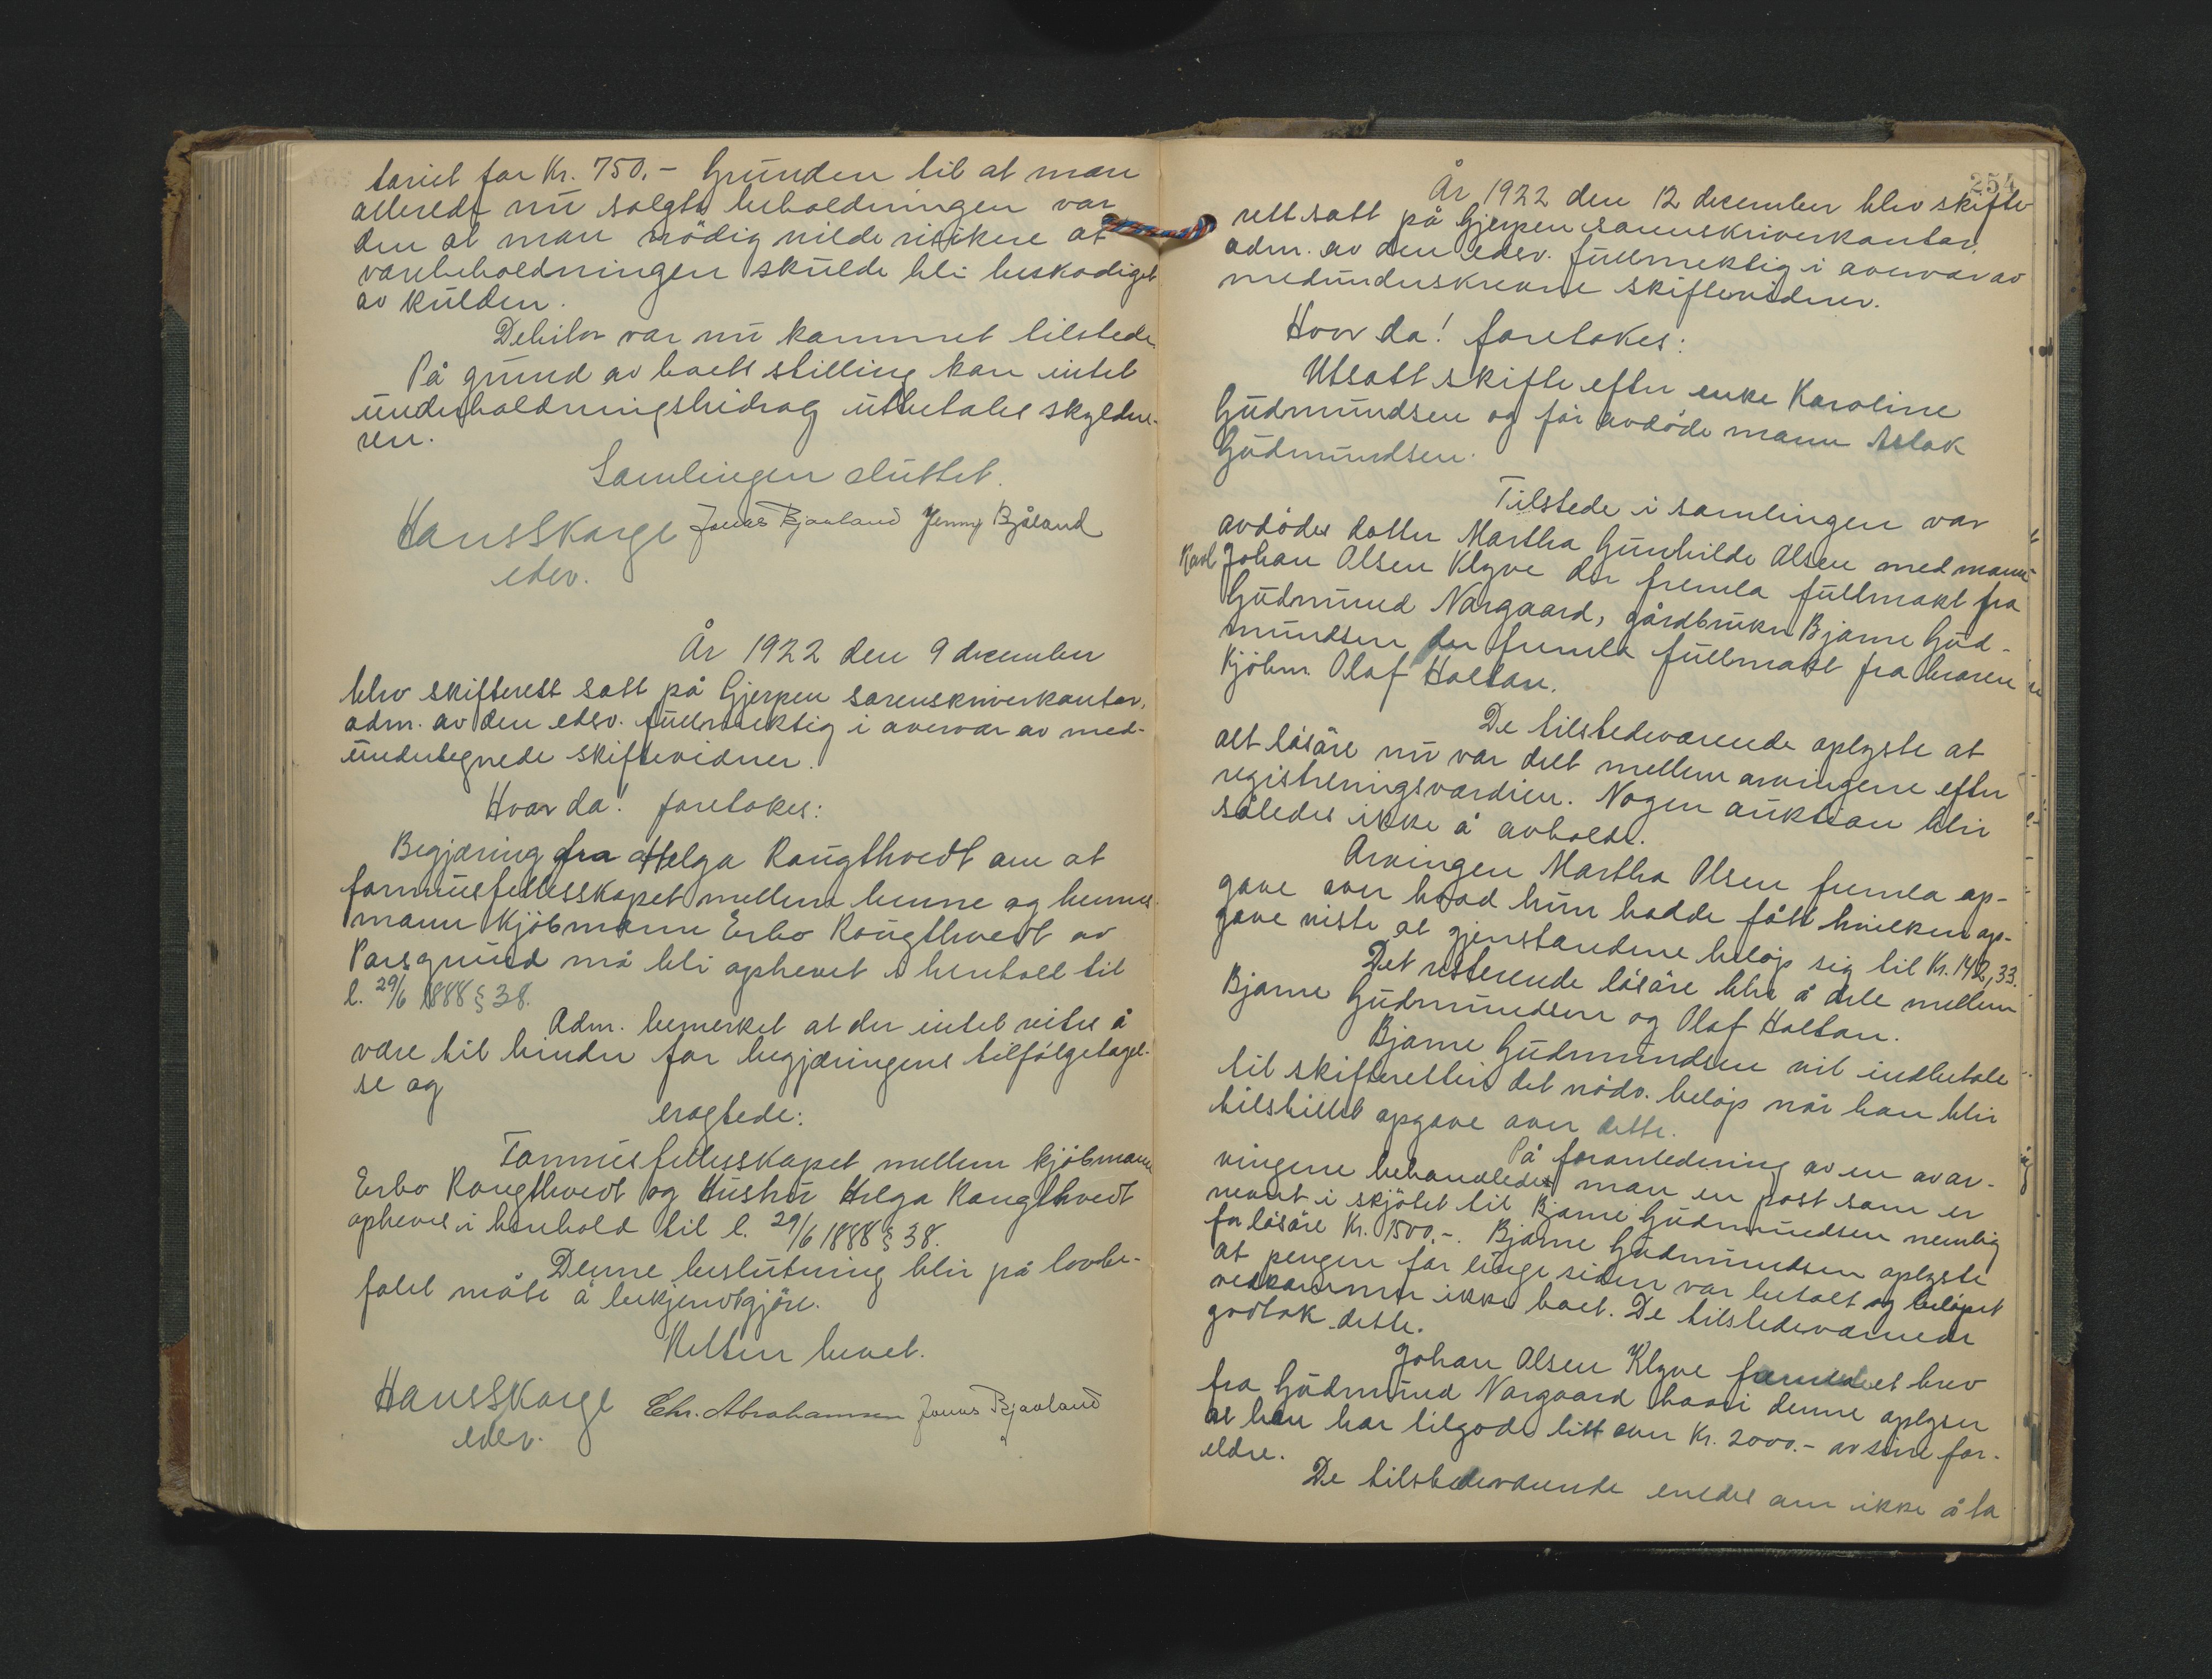 toriet for Kr. 750.- Grunden til at man
allerede nu solgte beholdningen var
den at man nödig vilde risikere at
varebeholdningen skulde bli beskadiget
av kulden.
Debitor var nu kommet tilstede.
På grund av boets stilling kan intet
underholdningsbidrag utbetales skyldne-
ren.
Samlingen sluttet.
Hans Skarge Jonas Bjaaland Jenny Bjåland
edsv.
År 1922 den 9 december
blev skifterett satt på Gjerpen sorenskriverkontor,
adm. av den edsv. fullmektig i overvær av med-
undertegnede skiftevidner.
Hvor da! foretokes:
Begjæring fra Helga Rougthvedt om at
formuesfellesskapet mellem henne og hennes
mann kjöbmann Erbo Rougthvedt av
Porsgrund må bli ophevet i henhold til
l. 29/6 1888 § 38.
Adm. bemerket at der intet vites å
være til hinder for begjæringens tilfölgetagel-
se og
eragtede:
Formuesfellesskapet mellem kjöbmann
Erbo Rougthvedt og Hustru Helga Rougthvedt
opheves i henhold til l. 29/6 1888 § 38.
Denne beslutning blir på lovbe-
falet måte å bekjendtgjöre.
Retten hevet.
Hans Skarge Chr. Abrahamsen Jonas Bjaaland
edsv.
254
År 1922 den 12 december blev skifte-
rett satt på Gjerpen sorenskriverkontor,
adm. av den edsv. fullmektig i overvær av
medunderskrevne skiftevidner.
Hvor da! foretokes:
Utsatt skifte efter enke Karoline
Gudmundsen og för avdöde mann Aslak
Gudmundsen.
Tilstede i samlingen var
avdödes datter Martha Gunhilde Olsen med mann
Karl Johan Olsen Klyve der fremla fullmakt fra
Gudmund Norgaard, gårdbruker Bjarne Gud-
mundsen der fremla fullmakt fra broren
Kjöbm. Olaf Holtan.
De tilstedeværende oplyste at
alt lösöre nu var delt mellem arvingene efter
registreringsværdien. Nogen auktion blir
således ikke å avholde.
Arvingen Martha Olsen fremla op-
gave over hvad hun hadde fått hvilken op-
gave viste at gjenstandene belöp sig til Kr. 142,33.
Det resterende lösöre blir å dele mellem
Bjarne Gudmundsen og Olaf Holtan.
Bjarne Gudmundsen vil indbetale
til skifteretten det nödv. belöp når han blir
tilstillet opgave over dette.
På foranledning av en av ar-
vingene behandledes man en post som er
nevnt i skjötet til Bjarne Gudmundsen nemlig
for lösöre Kr. 1500.-. Bjarne Gudmundsen oplyste
at pengene for lenge siden var betalt og belöpet
vedkommer ikke boet. De tilstedeværende
godtok dette.
Johan Olsen Klyve et brev
fra Gudmund Norgaard hvori denne oplyser
at han har tilgode litt over Kr. 2000.- av sine for-
eldre.
De tilstedeværende enedes om ikke å ta